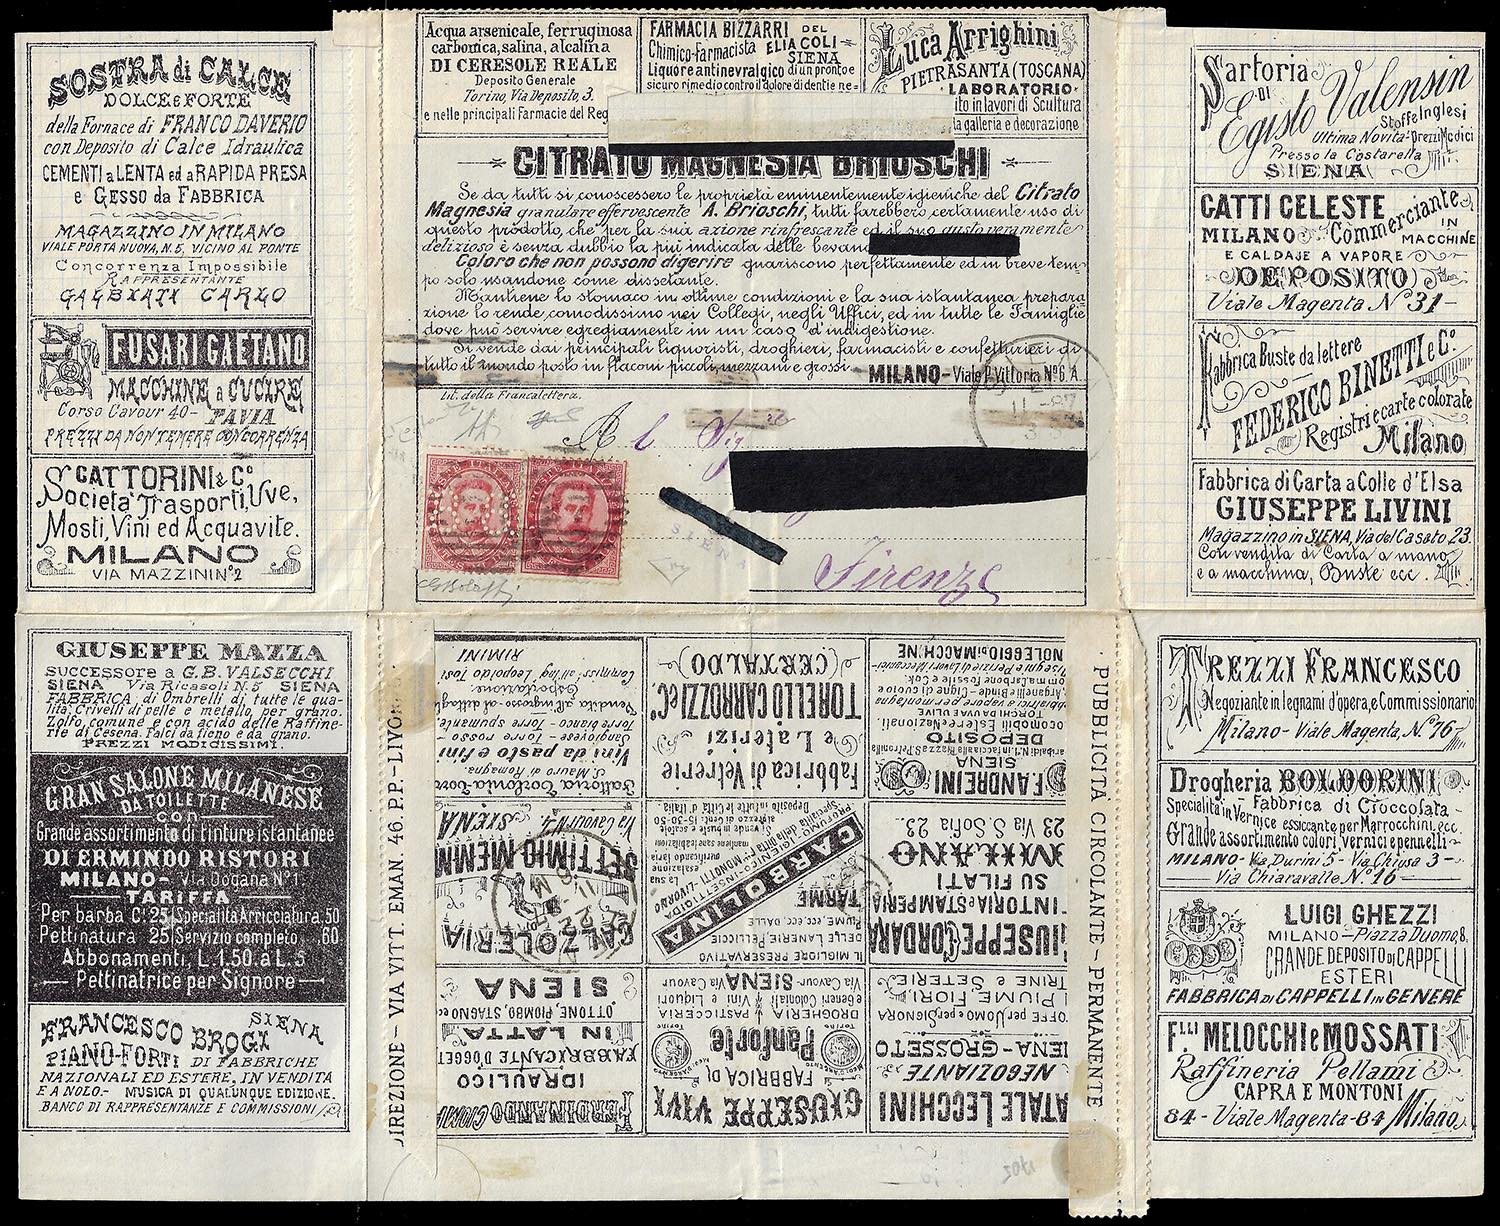 SOSTRA di CALCE
DOLCE e FORTE
della Fornace di FRANCO DAVERIO
con Deposito di Calce Idraulica
CEMENTI a LENTA ed a RAPIDA PRESA
e GESSO da FABBRICA
MAGAZZINO IN MILANO
VIALE PORTA NUOVA, N. 5, VICINO AL PONTE
Concorrenza Impossibile
RAPPRESENTANTE
GALBIATI CARLO
FUSARI GAETANO
MACCHINE a CUCIRE
Corso Cavour 40 - PAVIA
PREZZI DA NON TEMERE CONCORRENZA
S. CATTORINI & Co.
Società Trasporti, Uve,
Mosti, Vini ed Acquavite.
MILANO
VIA MAZZINI No. 2
Acqua arsenicale, ferruginosa
carbonica, salina, alcalina
DI CERESOLE REALE
Deposito Generale
Torino, Via Deposito, 3.
e nelle principali Farmacie del Reg
FARMACIA BIZZARRI DEL
Chimico-Farmacista ELIA COLI-
SIENA
Liquore antinevralgico di un pronto e
sicuro rimedio contro il dolore di denti e ne=
Luca Arrighini
PIETRASANTA (TOSCANA)
LABORATORIO
ito in lavori di Scultura
la galleria e decorazione
CITRATO MAGNESIA BRIOSCHI
Se da tutti si conoscessero le proprietà eminentemente igieniche del Citrato
Magnesia granulare effervescente A. Brioschi, tutti farebbero certamente uso di
questo prodotto, che per la sua azione rinfrescante ed il suo gusto veramente
delizioso è senza dubbio la più indicata delle bevan
Coloro che non possono digerire guariscono perfettamente ed in breve tem-
po solo usandone come dissetante.
Mantiene lo stomaco in ottime condizioni e la sua istantanea prepara-
zione lo rende comodissimo nei Collegi, negli Uffici, ed in tutte le Famiglie
dove può servire egregiamente in un caso d'indigestione.
Si vende dai principali liquoristi, droghieri, farmacisti e confetturieri di
tutto il mondo posto in flaconi piccoli, mezzani e grossi.
MILANO - Viale P. Vittoria No. 6. A.
Lit. della Francalettera.
Al Sig
SIEN
Firenze
11-87
Sartoria
DI
Egisto Valensin
Stoffe Inglesi
Ultima Novità - Prezzi Modici
Presso la Costarella
SIENA
GATTI CELESTE
MILANO Commerciante
IN MACCHINE
E CALDAJE A VAPORE
DEPOSITO
Viale Magenta No 31-
Fabbrica Buste da lettere
FEDERICO BINETTI e Co.
Registri e carte colorate
Milano
Fabbrica di Carta a Colle d'Elsa
GIUSEPPE LIVINI
Magazzino in SIENA, Via del Casato 23.
Con vendita di Carta a mano
e a macchina, Buste ecc.
GIUSEPPE MAZZA
SUCCESSORE a G. B. VALSECCHI
SIENA Via Ricasoli N. 5 SIENA
FABBRICA di Ombrelli di tutte le qua-
lità, Crivelli di pelle e metallo, per grano.
Zolfo, comune e con acido delle Raffine-
rie di Cesena. Falci da fieno e da grano.
PREZZI MODICISSIMI.
GRAN SALONE MILANESE
DA TOILETTE
con
Grande assortimento di tinture istantanee
DI ERMINDO RISTORI
MILANO - Via Dogana No. 1
TARIFFA
Per barba C. 25 Specialità Arricciatura. 50
Pettinatura 25 Servizio completo, .60
Abbonamenti, L. 1.50. à L. 3
Pettinatrice per Signore
FRANCESCO BROGI SIENA
PIANO-FORTI DI FABBRICHE
NAZIONALI ED ESTERE, IN VENDITA
E A NOLO.- MUSICA DI QUALUNQUE EDIZIONE.
BANCO DI RAPPRESENTANZE E COMMISSIONI
DIREZIONE - VIA VITT. EMAN. 46. P. P. - LIVOR
FERDINANDO
IDRAULICO
FABBRICANTE D'OGGET
IN LATTA,
OTTONE, PIOMBO, STAGNO ec
SIENA
CALZOLERIA
SETTIMIO MEMM
Via Cavour N. 4 SIENA
S. Mauro di Romagna.
Vini da pasto e fini
Sangiovese - Torre - rosso -
Torre bianco - Torre spumante.
Vendita all'ingrosso ed al dettaglio
Esportazione.
Commiss. all'ing. Leopoldo Tosi
RIMINI
GIUSEPPE VIVI
FABBRICA DI
Panforte
DROGHERIA PASTICCERIA
e Generi Coloniali Vini e Liquori
Via Cavour SIENA Via Cavour
IL MIGLIORE PRESERVATIVO
DELLE LANERIE PELLICCIE
PIUME, ECC. DALLE
TARME
CARBOLINA
Fabbrica di Vetrerie
e Laterizi
TORELLO CARROZZI e C.
(CERTALDO)
ATALE LECCHINI
NEGOZIANTE
IENA-GROSSETO
OFFE per UOMO e per SIGNORA
I, PIUME, FIORI,
TRINE E SETERIE.
GIUSEPPE CORDARA
INTORIA e STAMPERIA
SU FILATI
MILANO
23 Via S. Sofia 23.
F. ANDREINI
SIENA
DEPOSITO
TORCHI DA UVE E OLIVE
NOLEGGIO di MACCHINE
PUBBLICITÀ CIRCOLANTE - PERMANENTE
TREZZI FRANCESCO
Negoziante in legnami d'opera, e Commissionario
Milano - Viale Magenta, N. 76
Drogheria BOLDORINI
Fabbrica di Cioccolata -
Specialità in Vernice essiccante per Marrocchini, ecc.
Grande assortimento colori, vernici e pennelli -
MILANO - Via Durini 5 - Via Chiusa 3 -
Via Chiaravalle No. 16
LUIGI GHEZZI
MILANO - Piazza Duomo, 8.
GRANDE DEPOSITO di CAPPELLI
ESTERI
FABBRICA di CAPPELLI in GENERE
F.lli MELOCCHI e MOSSATI
Raffineria Pellami
CAPRA E MONTONI
84 - Viale Magenta - 84 Milano.